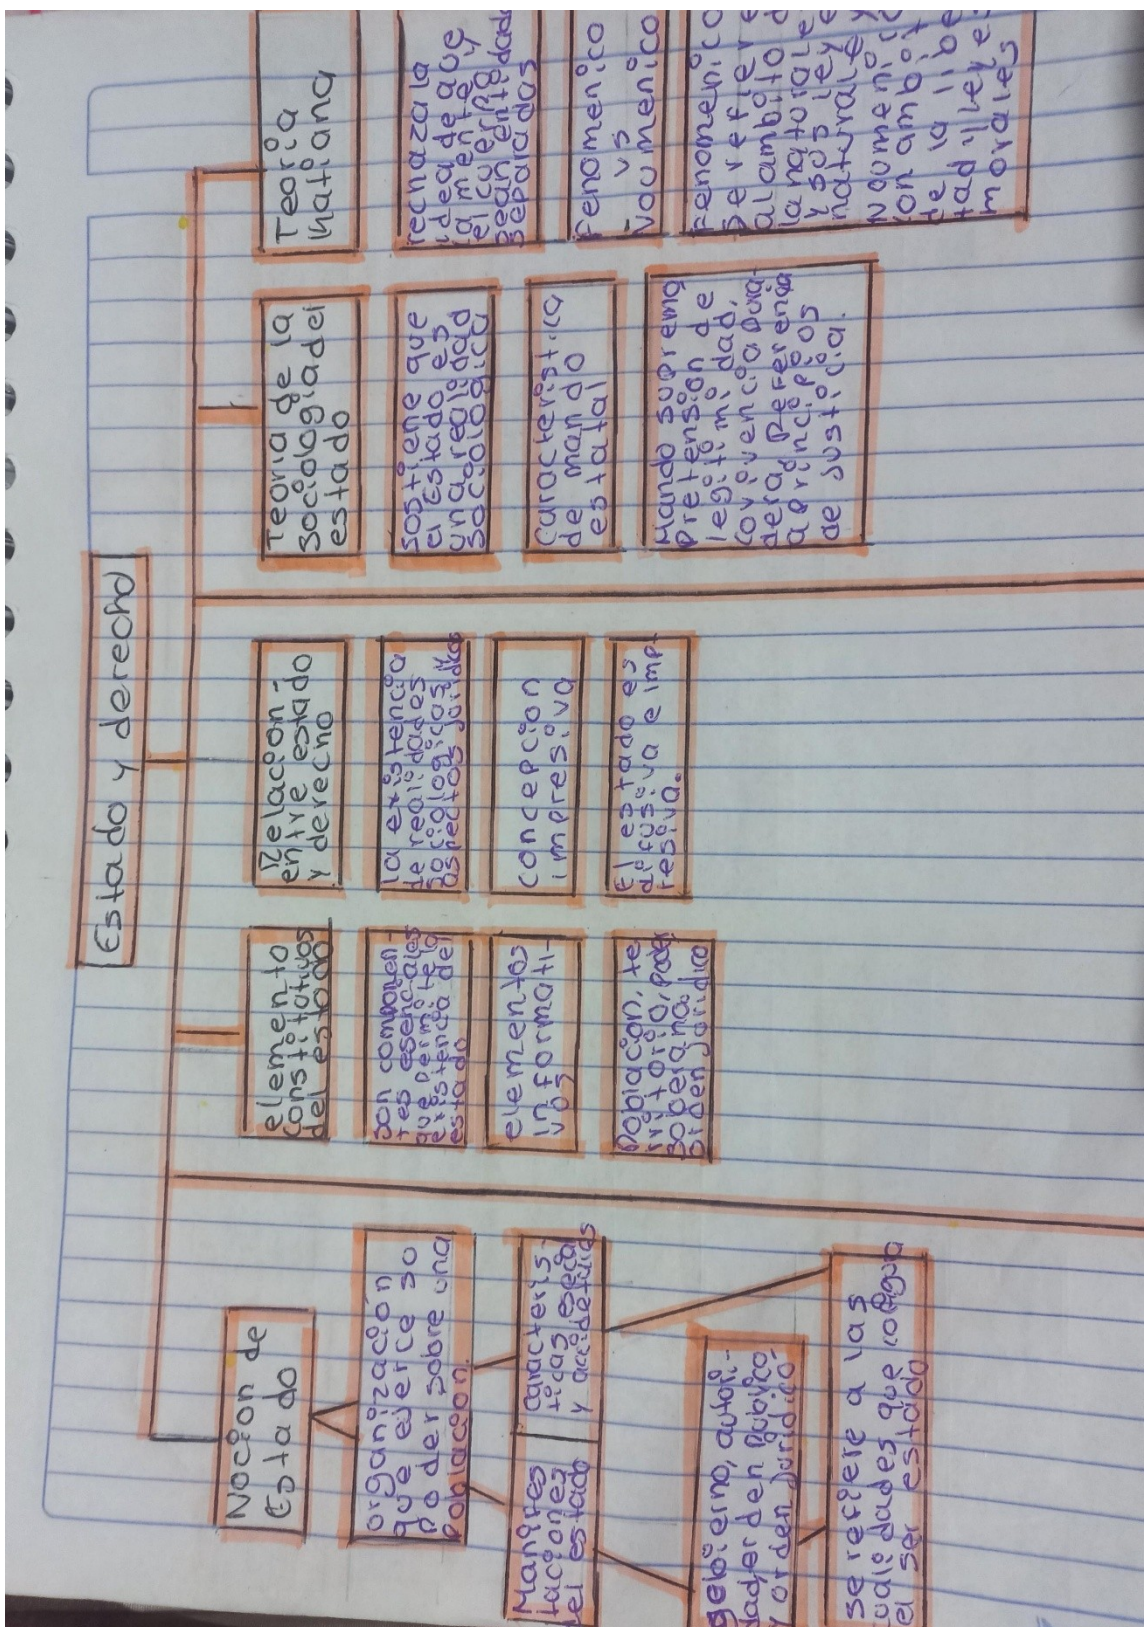 Estado y derecho
Noción de
Estado
organización
que ejerce so
poder sobre una
población.
Manifes
taciones
el estado
caracterís-
ticas esecia
y accidetules
gobierno, autori-
dad, orden público
y orden jurídico.
se refiere a las
cualidades que
el ser estado
elemento
constitutivos
del estado
son componen-
tes esenciales
que permite la
existencia del
estado
elementos
informati-
vos
Población, te
rritorio, poder
soberana
orden jurídico
Relación
entre estado
y derecho
la existencia
de realidades
sociologicas y
aspectos jurídicos
concepción
impresiva
El estado es
difusiva e imp-
resiva.
Teoria de la
sociologia del
estado
sostiene que
el Estado es
una realidad
sociologica
característica
de mando
estatal
Mando supremo
Pretensión de
legitimidad,
covivencia pura-
dera Referencia
a principios
de justicia.
Teoria
Katiana
rechaza la
idea de que
la mente y
el cuerpo
sean entidades
separadas
Fenomenico
vs
Noumenico
Fenomenico
se refiere
al ambito d
la naturale
y sus leye
naturale y
Noumenic
con ambit
de la libe
tad y leye
morales